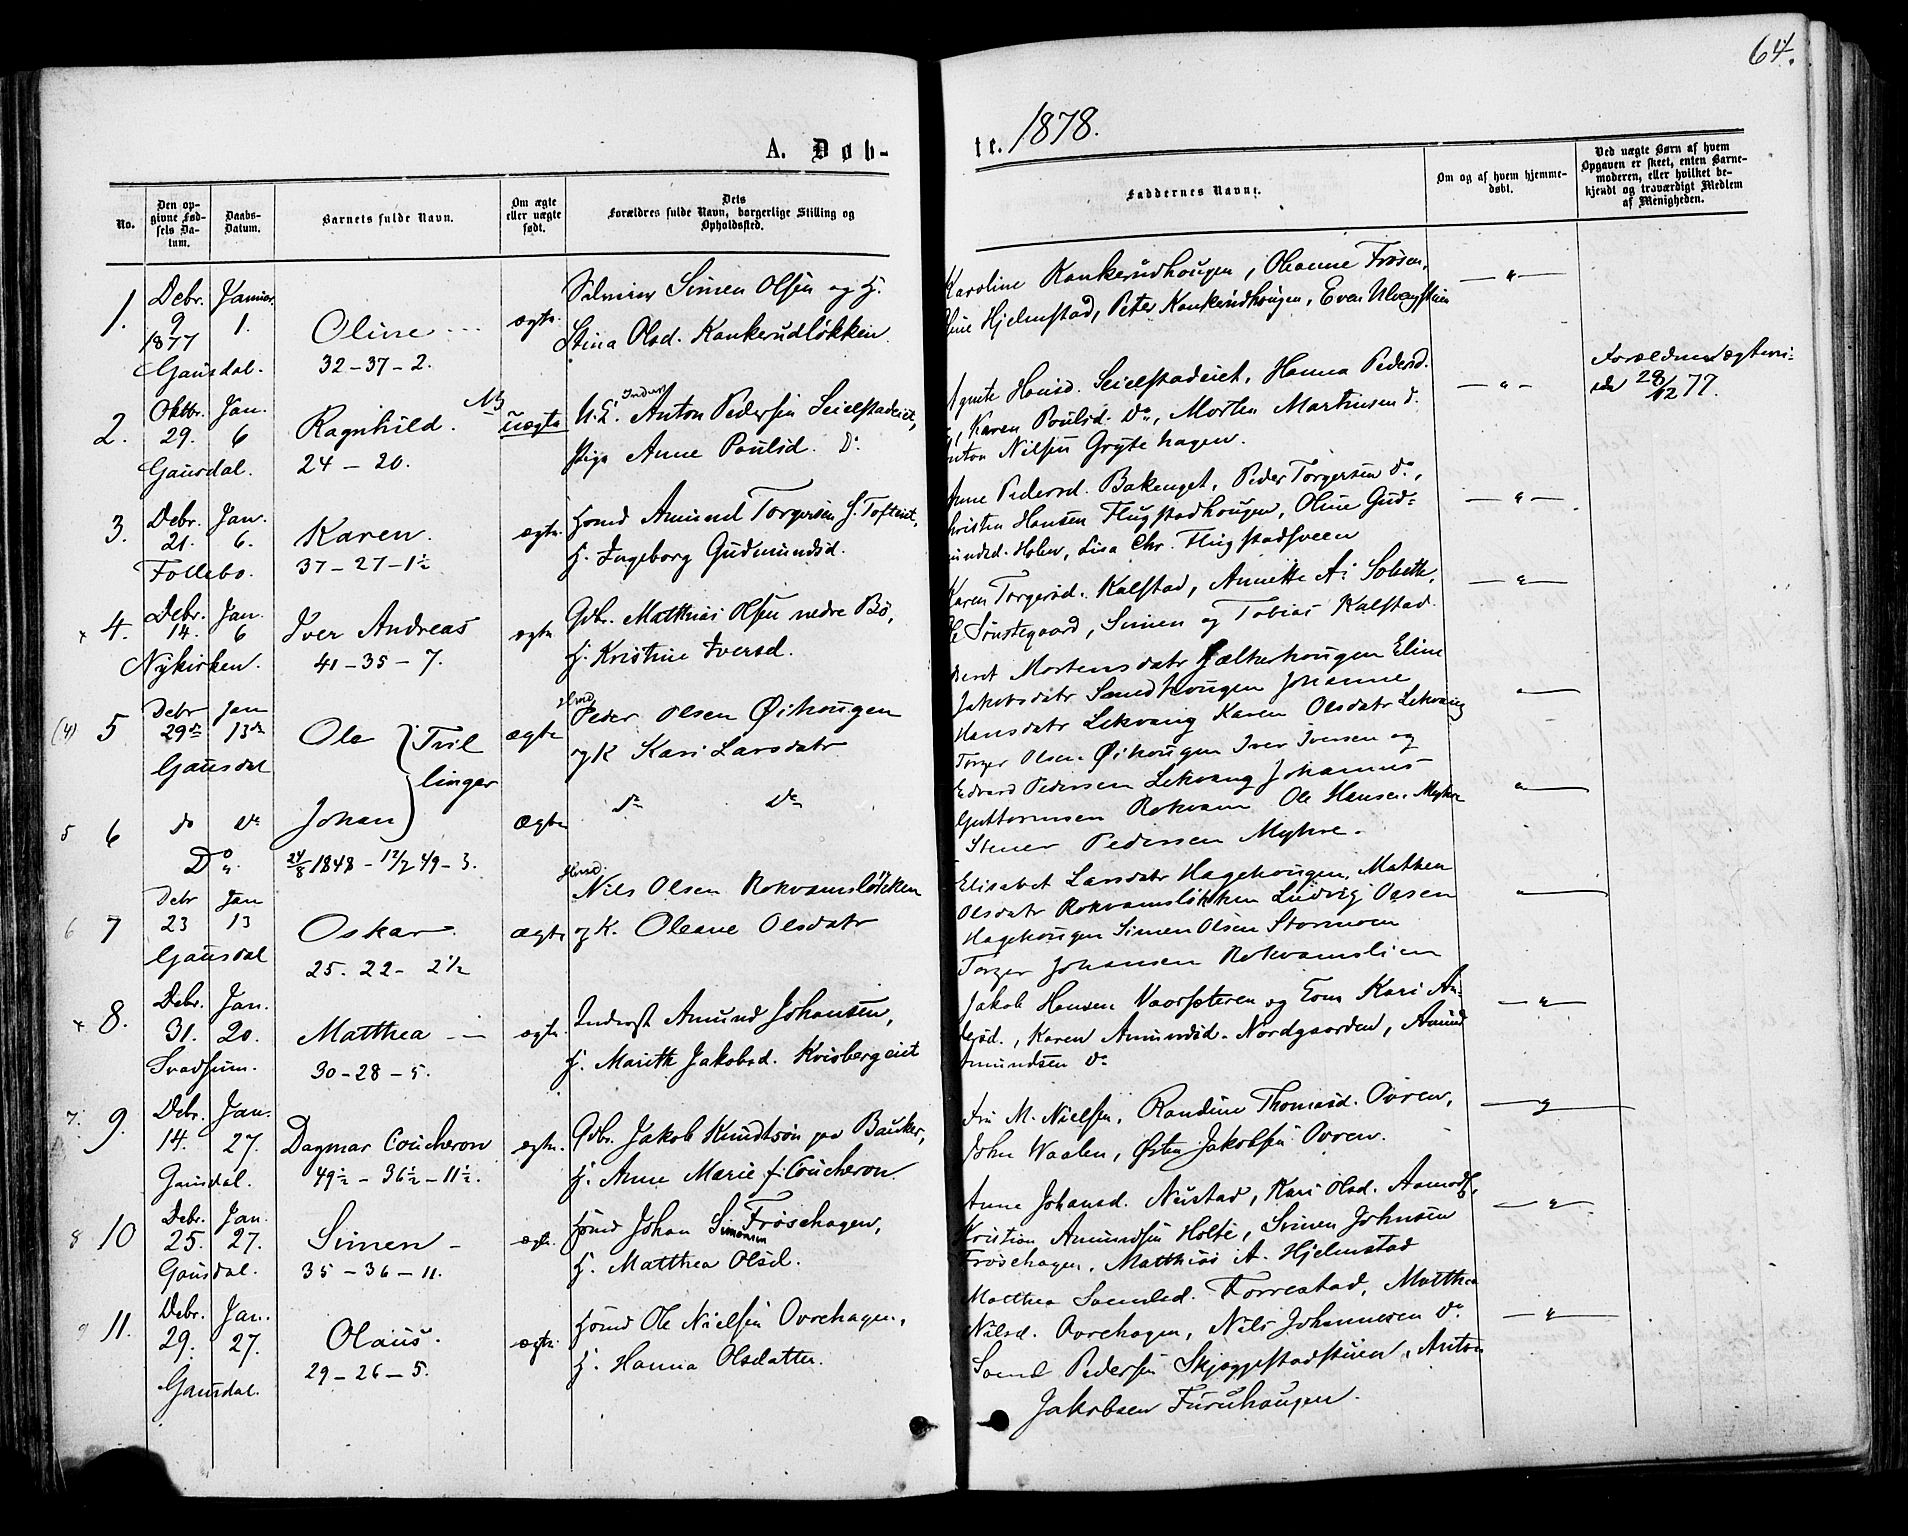 64.
A. Døb-
te. 1878.
No.
Den op-
givne Fød-
sels Da-
tum.
Daabs-
Datum.
Barnets fulde Navn.
Om ægte
eller uægte
født.
Dets
Forældres fulde Navn, borgerlige Stilling og
Opholdssted.
Faddernes Navne.
Om og af hvem hjemme-
døbt.
Ved uægte Børn af hvem
Opgaven er skeet, enten Barne-
moderen, eller hvilket be-
kjendt og troværdigt Medlem
af Menigheden.
1.
Debr. Januar
9 1.
1877
Gausdal.
Oline
32-37-2.
ægte.
Simen Olsen og H.
Stina Olsd. Kankerudløkken.
Karoline Kankerudhougen, Oleanne Frøsen,
Hjelmstad, Peter Kankerudhougen, Even
2.
Oktbr. Jan.
29. 6
Gausdal.
Ragnhild. NB
24-20.
uægte
U.K. Inderst Anton Pedersen Seielstadeiet,
Pige Anne Poulsd. Do
Agnete Hansd. Seielstadeiet, Hanna Pedersd.
Karen Poulsd. Do, Morten Martinsen d.
Anton Nilsen Grytehagen.
Forældrene Ægtevi-
ede 28/12 77.
3.
Debr. Jan.
21. 6.
Follebo.
Karen.
37-27-1½
ægte.
Hsmd Amund Torgersen S. Tofteiet,
H. Ingeborg Gudmundsd.
Anne Pedersd. Bakenget, Peder Torgersen do,
Christen Hansen Flugstadhougen, Oline Gud=
mundsd. Holen, Lisa Chr. Flugstadsveen
4.
Debr. Jan.
14. 6
Nykirken.
Iver Andreas
41-35-7.
ægte
Gbr. Matthias Olsen nedre Bø,
H. Kristine Iversd.
Karen Torgersd. Kalstad, Annette A. Solbette,
Ole Sønstegaard, Simen og Tobias Kalstad.
(4) 5
Debr Jan
29de 13de
Gausdal
Ole } Tvil
linger
ægte
Hsmd
Peder Olsen Øihougen
og K Kari Larsdatr
Beret Mortensdatr Jælkerhougen Eline
Jakobsdatr Sandhougen Johanne
Hansdatr Lekvang Karen Olsdatr Lekvang
Torger Olsen Øihougen Iver Iversen og
Edvard Pedersen Lekvang Johannes
5 6
do Do
Do
Johan
24/8 1848 - 12/2 49 - 3.
Ægte
do Do
Guttormsen Rokvam Ole Hansen Myhre
Stener Pedersen Myhre.
6 7
Debr Jan
23 13
Gausdal
Oskar.
25-22-2½
ægte
Hsmd.
Nils Olsen Rokvamsløkken
og K. Oleane Olsdatr
Elisabet Larsdatr Hagehougen, Mathea
Olsdatr Rokvamsløkken Ludvig Olsen
Hagehougen Simen Olsen Stormoen
Torger Johansen Rokvamslien
8.
Debr. Jan.
31. 20.
Svatsum.
Matthea
30-28-5.
ægte.
Inderst Amund Johansen,
H. Marith Jakobsd. Kvisbergeiet
Jakob Hansen Vaarsæteren og Kone Kari An-
dersd., Karen Amundsd. Nordgaarden, Amund
Amundsen Do
7. 9.
Debr. Jan.
14. 27.
Gausdal.
Dagmar Coucheron
49½-36½-11½.
ægte.
Gbr. Jakob Knudtsøn paa Bauker,
H. Anne Marie f. Coucheron.
Fru M. Nielsen, Randine Thomasd. Ovren,
John Waalen, Østen Jakobsen Ovren.
8 10
Debr. Jan.
25. 27.
Gausdal.
Simen
35-36-11.
ægte.
Hsmd Johan Simonsen Frøsehagen,
H. Matthea Olsd.
Anne Johansd. Neistad, Kari Olsd. Aamodt,
Kristian Amundsen Holte, Simen Johnsen
Frøsehagen, Matthias A. Hjelmstad
9 11.
Debr. Jan.
29. 27.
Gausdal.
Olaus.
29-26-5.
ægte.
Hsmd Ole Nielsen Ovrehagen,
H. Hanna Olsdatter.
Matthea Svendsd. Forrestad, Matthea
Nilsd. Ovrehagen, Nils Johannesen Do
Svend Pedersen Skjeggestadstuen, Anton
Jakobsen Furuhaugen.